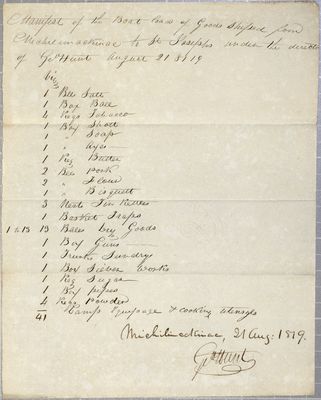 Manifest of the Boat load of Goods Shipped from
Michilimackinac to St Josephs under the direction
of Geo Hunt August 21st 1819
Viz
1 Bbl Salt
1 Box Ball
4 Kegs Tobacco
1 Box Shott
1 " Soap
1 " Axes
1 Keg Butter
2 Bbls Pork
2 " Flour
1 " Bisquett
3 Nests Tin Kettles
1 Basket Traps
1 to 13 13 Bales Dry Goods
1 Box Guns
1 Trunk Sundrys
1 Box Silver Works
1 Keg Sugar
1 Box pipes
4 Kegs Powder
41 Camp Equipage & cooking utensils
Michilimackinac, 21 Aug: 1819.
Geo Hunt